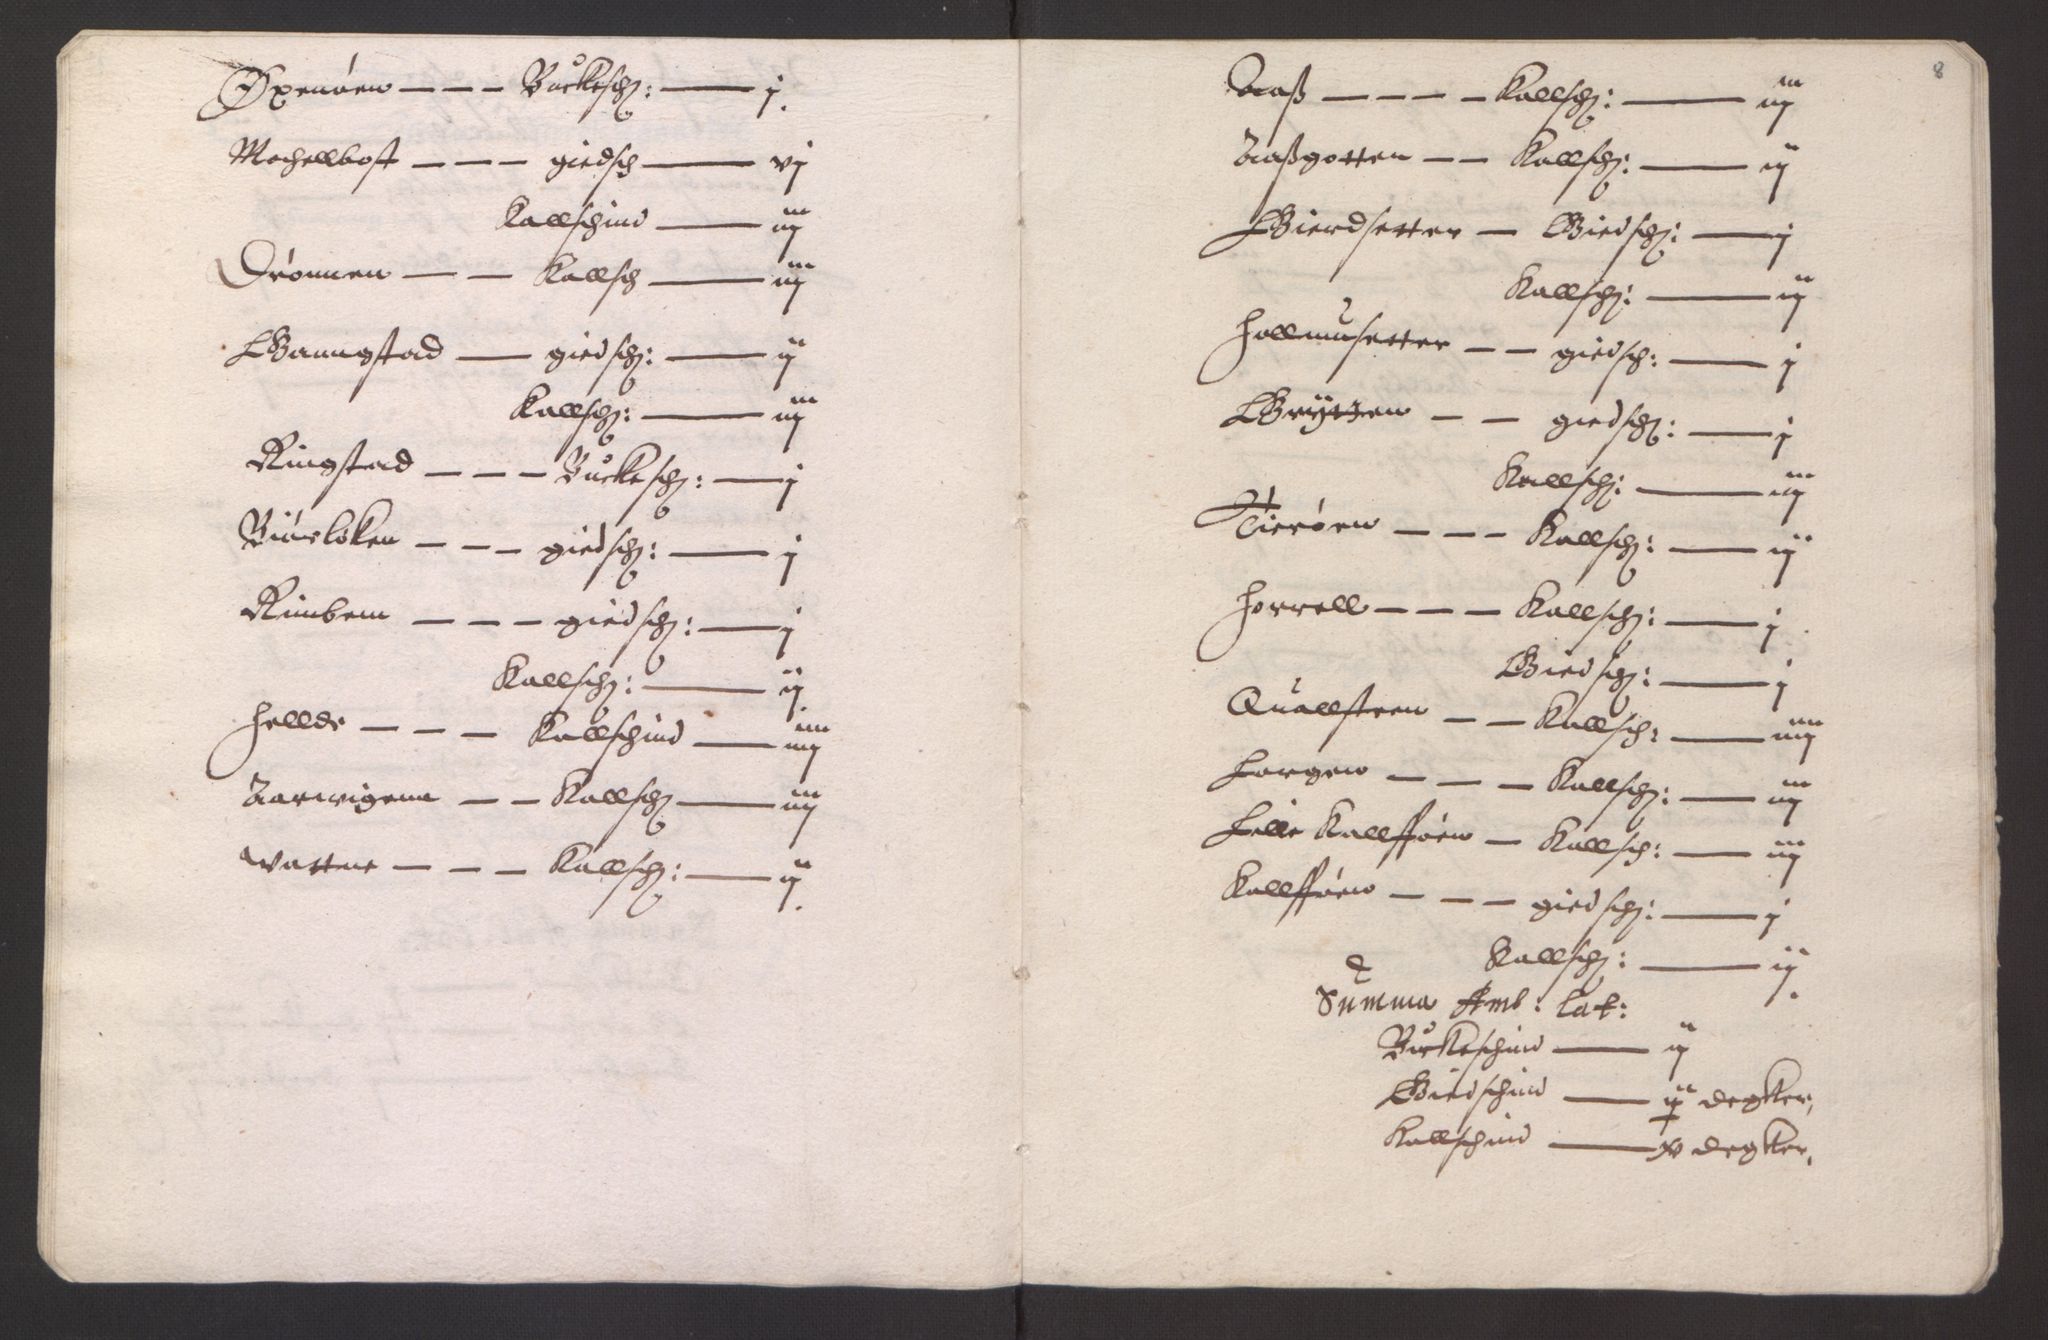 Øxenøen — — — Buckesch: — j.
Mochellbost — — — giedsch — vj
Kallschind — iij
Drönnen — — Kallsch — iij
Gaungstad — giedsch: — ij
Kallsch: — iij
Ringstad — — — Buckesch: — j
Biörløken — — — giedsch: — j
Rimbem — — — giedsch: — j
Kallsch: — ij
Hellde — — — Kallschind — iiij
Aarwigenn — — Kallsch — iij
Wattne — — — Kallsch: — ij.
8
Aaß — — — — Kallsch: — iij
Aaßgotten — — Kallsch: — ij
Gierdsetter — Giedsch: — j
Kallsch: — ij
Hollmusetter — — giedsch: — j
Grytten — — giedsch: — j
Kallsch: — iij
Tierøen — — — Kallsch: — ij
Horrell — — — Kallsch: — j
Giedsch: — j
Quallsteen — — Kallsch: — iiij
Horgen — — — Kallsch: — iij
Lille Kallfføen — Kallsch: — iij
Kallfføen — — — giedsch: — j
Kallsch: — ij.
Summa Amb: Lat:
Buckeschind — ij
Giedschind — ij degker,
Kallschind — x degker,